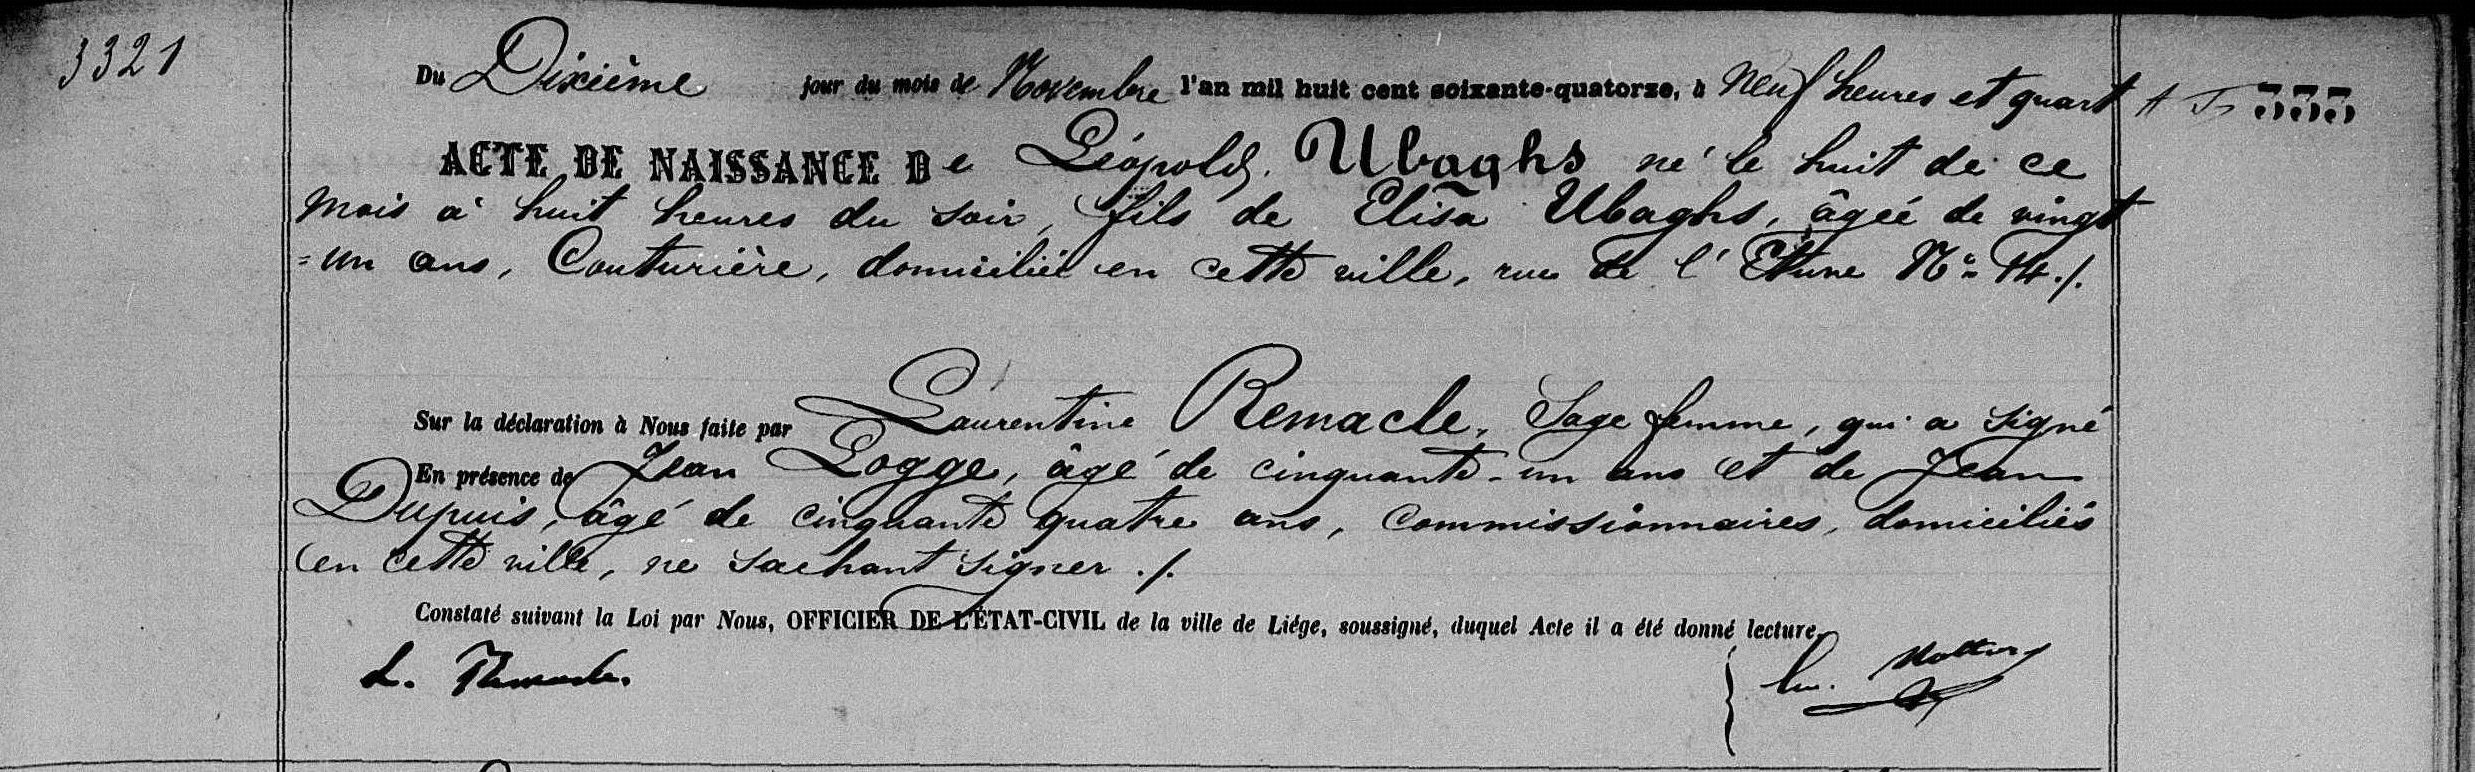 3321
Du Dixième jour du mois de Novembre l'an mil huit cent soixante-quatorze, à Neuf heures et quart
333
ACTE DE NAISSANCE De Léopold Ubaghs né le huit de ce
mois à huit heures du soir, fils de Elisa Ubaghs, âgée de vingt
=un ans, Couturière, domiciliée en cette ville, rue de l'Etuve N° 14./.
Sur la déclaration à Nous faite par Laurentine Remacle, Sage femme, qui a signé
En présence de Jean Logge, âgé de cinquante-un ans et de Jean
Dupuis, âgé de cinquante quatre ans, commissionnaires, domiciliés
en cette ville, ne sachant signer ./.
Constaté suivant la Loi par Nous, OFFICIER DE L'ÉTAT-CIVIL de la ville de Liége, soussigné, duquel Acte il a été donné lecture.
L. Remacle.